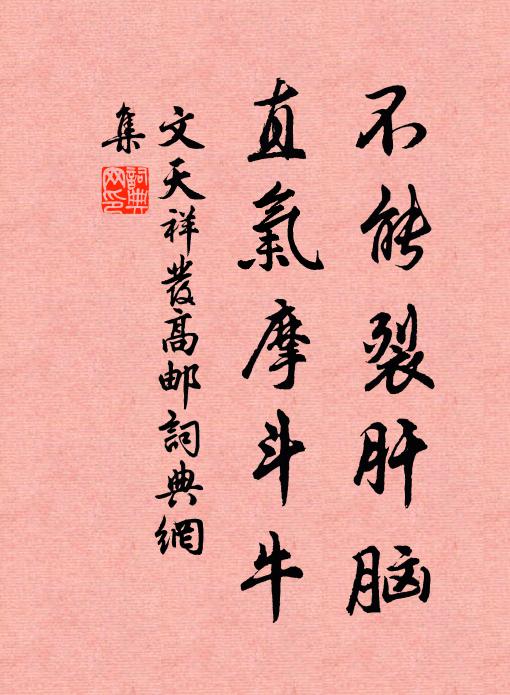 不能裂肝脑
直氣摩斗牛
文天祥發高邮詞典網
集
詞典
网印